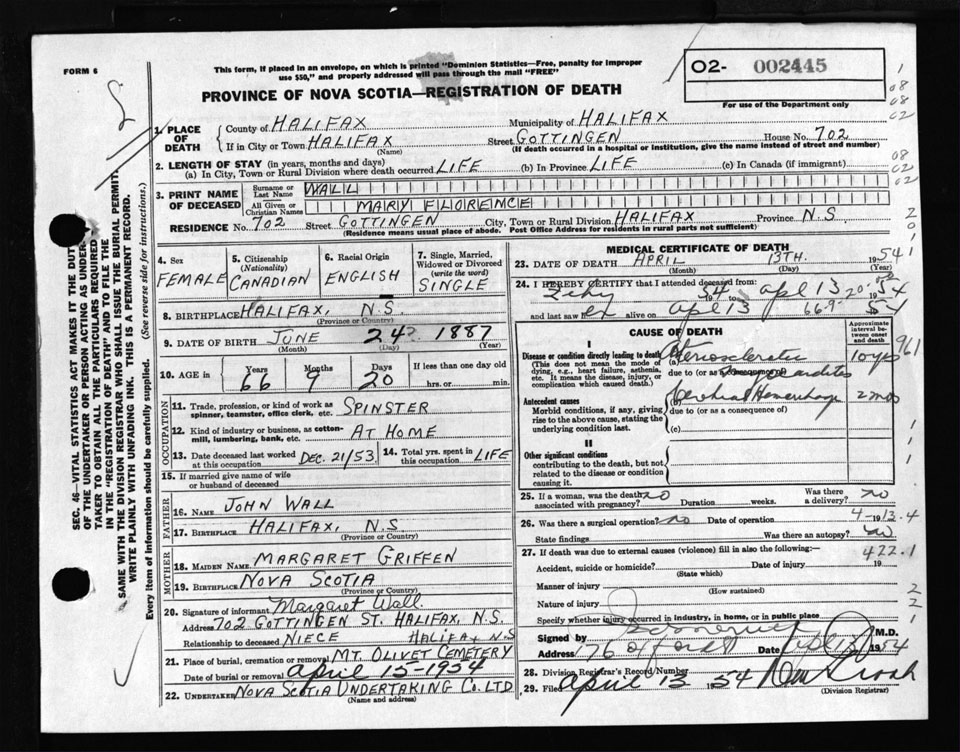 FORM 6
This form, if placed in an envelope, on which is printed "Dominion Statistics—Free, penalty for improper
use $50," and properly addressed will pass through the mail "FREE"
PROVINCE OF NOVA SCOTIA—REGISTRATION OF DEATH
O2- 002445
For use of the Department only
SEC. 46—VITAL STATISTICS ACT MAKES IT THE DUTY
OF THE UNDERTAKER OR PERSON ACTING AS UNDER-
TAKER TO OBTAIN ALL THE PARTICULARS REQUIRED
IN THE "REGISTRATION OF DEATH" AND TO FILE THE
SAME WITH THE DIVISION REGISTRAR WHO SHALL ISSUE THE BURIAL PERMIT.
WRITE PLAINLY WITH UNFADING INK. THIS IS A PERMANENT RECORD.
Every item of information should be carefully supplied. (See reverse side for instructions.)
1. PLACE OF DEATH
County of HALIFAX Municipality of HALIFAX
If in City or Town HALIFAX Street GOTTINGEN House No. 702
(Name) (If death occurred in a hospital or institution, give the name instead of street and number)
2. LENGTH OF STAY (in years, months and days)
(a) In City, Town or Rural Division where death occurred LIFE (b) In Province LIFE (c) In Canada (if immigrant)
3. PRINT NAME OF DECEASED
Surname or Last Name WALL
All Given or Christian Names MARY FLORENCE
RESIDENCE No. 702 Street GOTTINGEN City, Town or Rural Division HALIFAX Province N.S.
(Residence means usual place of abode. Post Office Address for residents in rural parts not sufficient)
4. Sex FEMALE
5. Citizenship (Nationality) CANADIAN
6. Racial Origin ENGLISH
7. Single, Married, Widowed or Divorced (write the word) SINGLE
8. BIRTHPLACE HALIFAX, N.S.
(Province or Country)
9. DATE OF BIRTH JUNE 24? 1887
(Month) (Day) (Year)
10. AGE in Years 66 Months 9 Days 20 If less than one day old hrs. or min.
OCCUPATION
11. Trade, profession, or kind of work as spinner, teamster, office clerk, etc. SPINSTER
12. Kind of industry or business, as cotton-mill, lumbering, bank, etc. AT HOME
13. Date deceased last worked at this occupation DEC. 21/53
14. Total yrs. spent in this occupation LIFE
15. If married give name of wife or husband of deceased
FATHER
16. Name JOHN WALL
17. BIRTHPLACE HALIFAX, N.S.
(Province or Country)
MOTHER
18. MAIDEN NAME MARGARET GRIFFEN
19. BIRTHPLACE NOVA SCOTIA
(Province or Country)
20. Signature of informant Margaret Wall.
Address 702 GOTTINGEN ST. HALIFAX, N.S.
Relationship to deceased NIECE HALIFAX N.S
21. Place of burial, cremation or removal MT. OLIVET CEMETERY
Date of burial or removal April 15-1954
22. UNDERTAKER NOVA SCOTIA UNDERTAKING CO. LTD
(Name and address)
MEDICAL CERTIFICATE OF DEATH
23. DATE OF DEATH APRIL 13TH. 1954
(Month) (Day) (Year)
24. I HEREBY CERTIFY that I attended deceased from:
54 to apl 13 1954
and last saw her alive on apl 13 54
66-9-20
CAUSE OF DEATH
Approximate interval between onset and death
I
Disease or condition directly leading to death
(This does not mean the mode of dying, e.g., heart failure, asthenia, etc. It means the disease, injury, or complication which caused death.)
(a) Arteriosclerotic 10 yrs
due to (or as a consequence of)
Antecedent causes
Morbid conditions, if any, giving rise to the above cause, stating the underlying condition last.
(b) Cerebral Hemorrhage 2 mos
due to (or as a consequence of)
(c)
II
Other significant conditions
contributing to the death, but not related to the disease or condition causing it.
25. If a woman, was the death associated with pregnancy? no Duration weeks. Was there a delivery? no
26. Was there a surgical operation? no Date of operation 19
State findings Was there an autopsy? no
4-13-4
27. If death was due to external causes (violence) fill in also the following:—
Accident, suicide or homicide? Date of injury 19
(State which)
422.1
Manner of injury
(How sustained)
Nature of injury
Specify whether injury occurred in industry, in home, or in public place
Signed by M.D.
Address 176 Oxford St Date apl 13 1954
28. Division Registrar's Record Number
29. Filed April 13 1954
(Division Registrar)